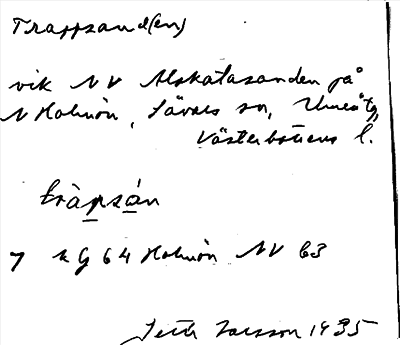 Trappsand(en)
vik NV Alskatasanden på
N Holmön, Sävars sn, Umeå tg,
Västerbottens l.
tràpsán
7 KG 64 Holmön NV 63
Seth Larsson 1935